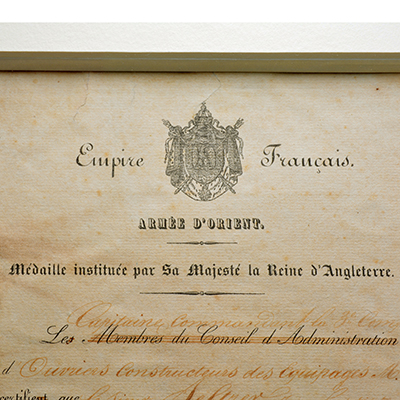 Empire Français.
ARMÉE D'ORIENT.
Médaille instituée par Sa Majesté la Reine d'Angleterre.
Capitaine commandant la 9e
Les Membres du Conseil d'Administration
d'Ouvriers constructeurs des équipages
certifient que